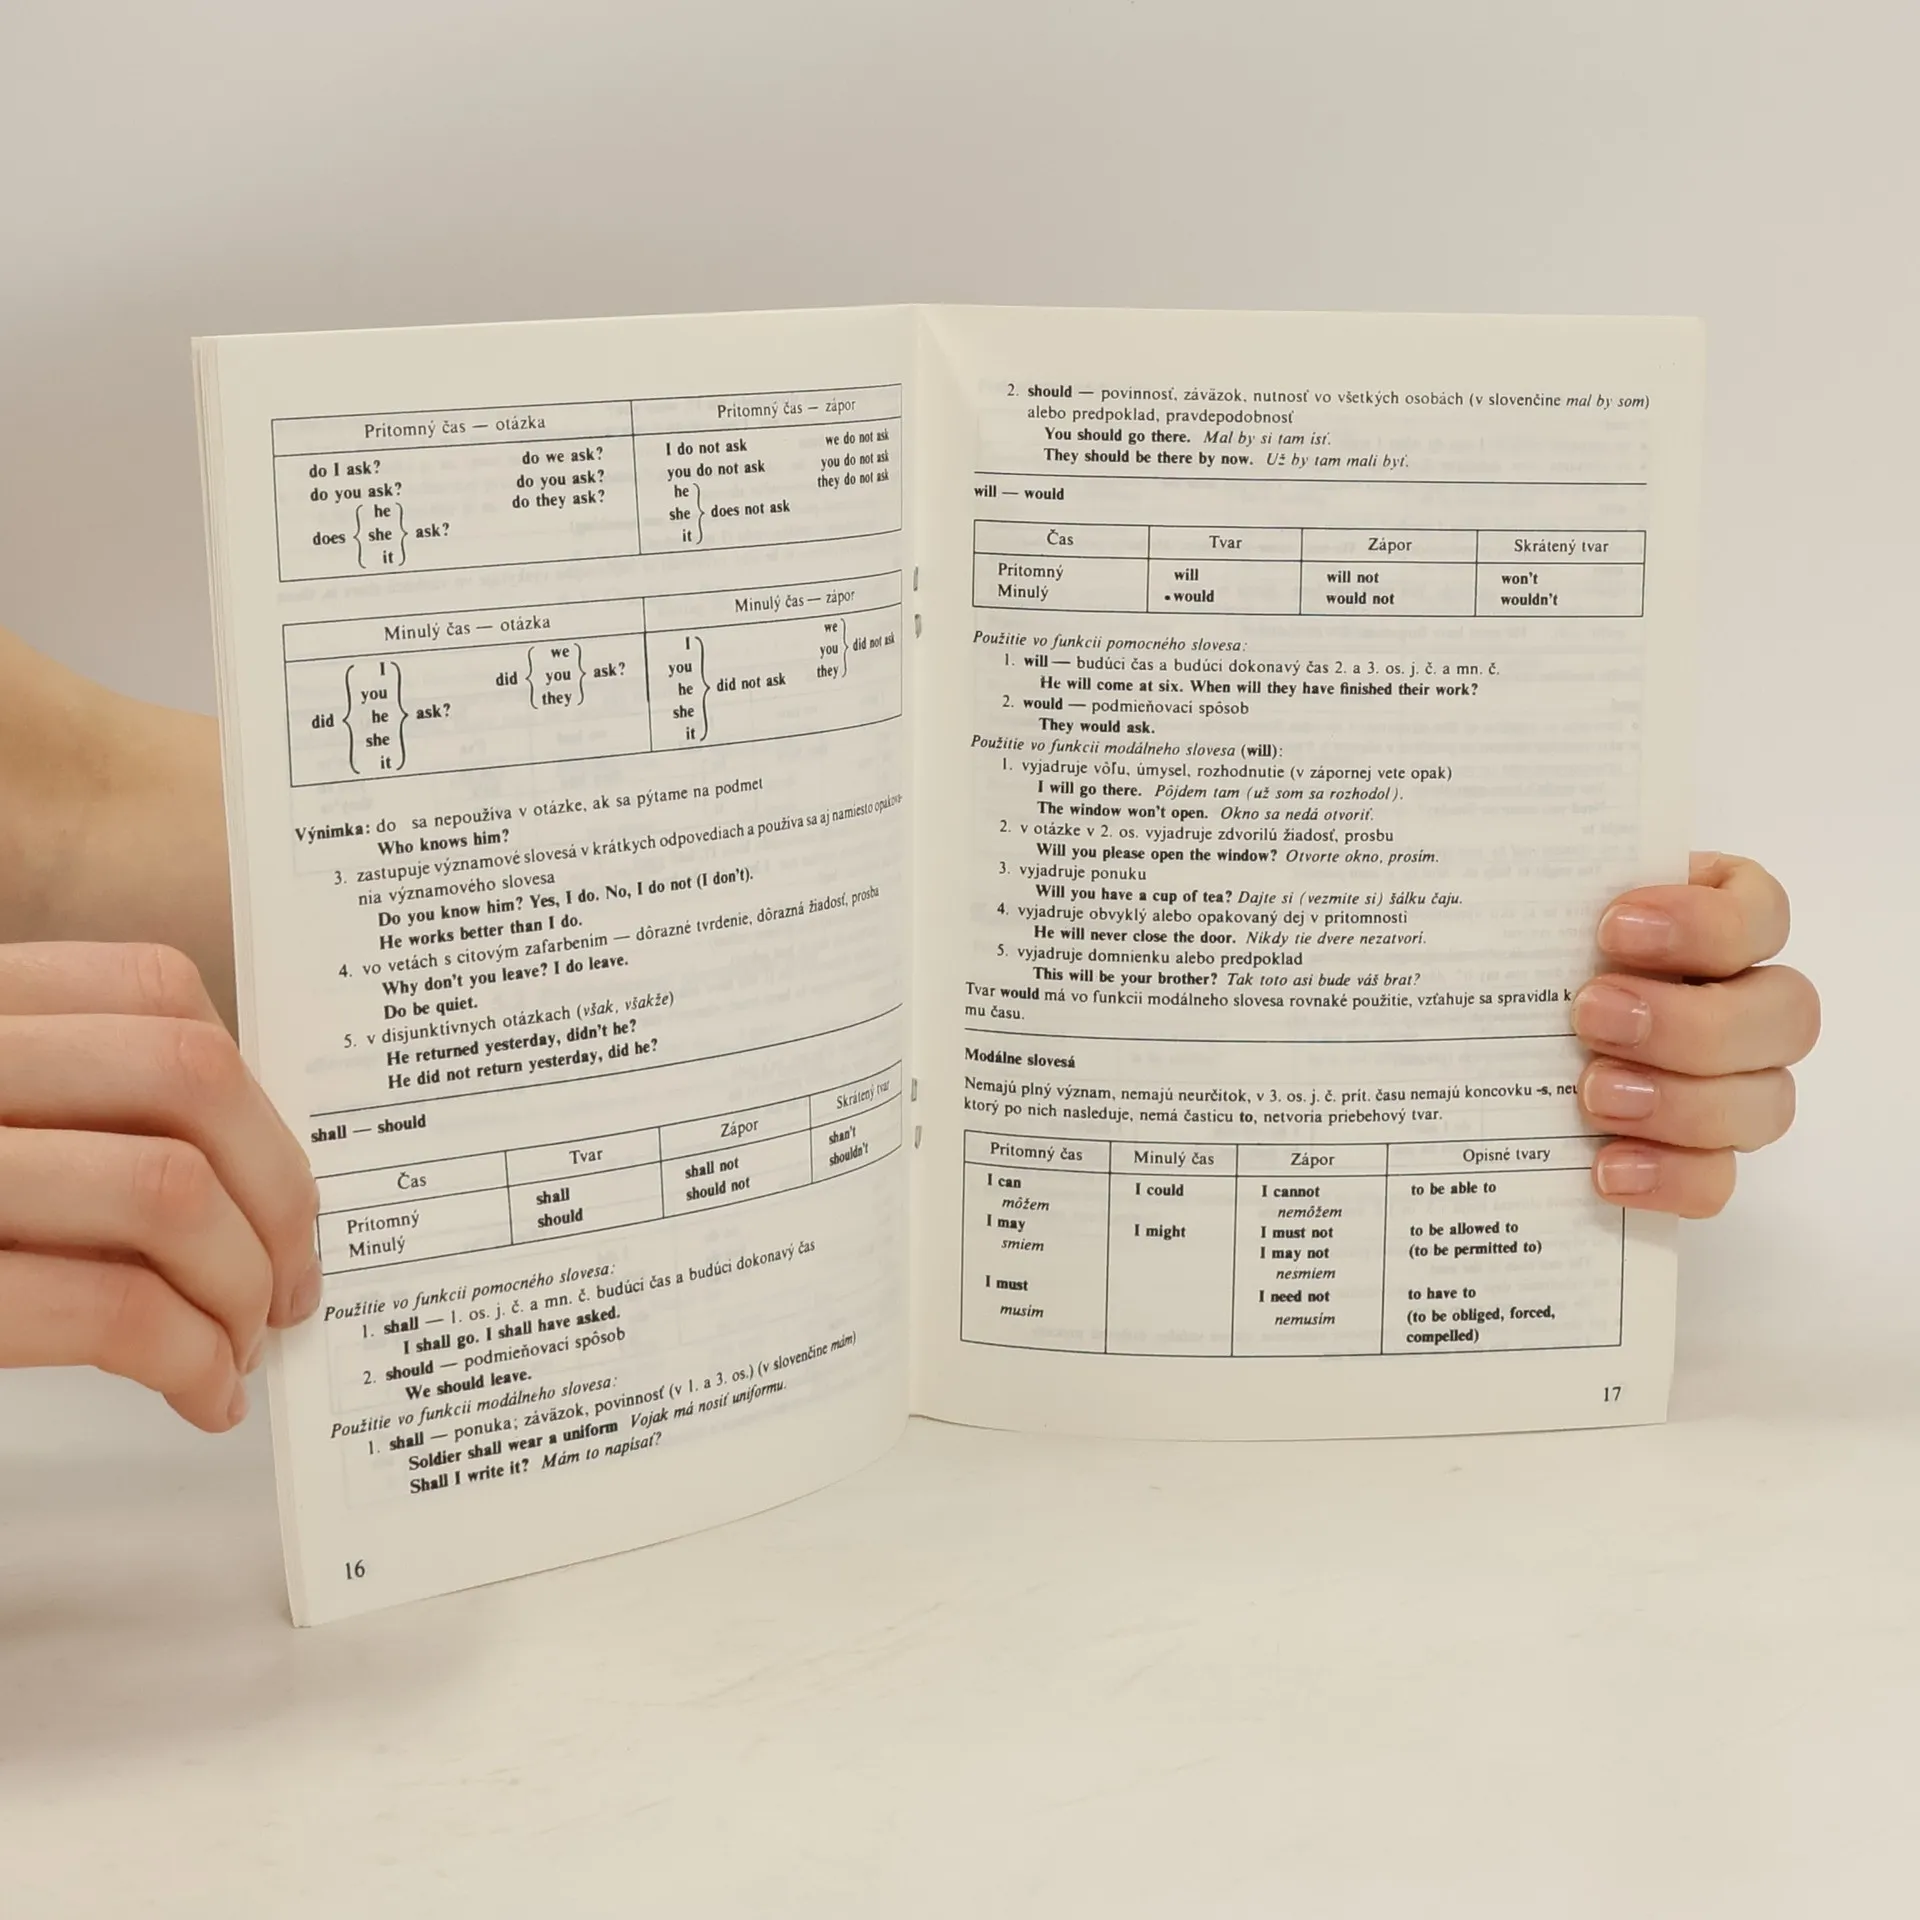 Prítomný čas — otázka Prítomný čas — zápor
do I ask? do we ask? I do not ask we do not ask
do you ask? do you ask? you do not ask you do not ask
does he she it ask? do they ask? he she it does not ask they do not ask
Minulý čas — otázka Minulý čas — zápor
did I you he she it ask? did we you they ask? I you he she it did not ask we you they did not ask
Výnimka: do sa nepoužíva v otázke, ak sa pýtame na podmet
Who knows him?
3. zastupuje významové slovesá v krátkych odpovediach a používa sa aj namiesto opakova-
nia významového slovesa
Do you know him? Yes, I do. No, I do not (I don't).
He works better than I do.
4. vo vetách s citovým zafarbením — dôrazné tvrdenie, dôrazná žiadosť, prosba
Why don't you leave? I do leave.
Do be quiet.
5. v disjunktívnych otázkach (však, všakže)
He returned yesterday, didn't he?
He did not return yesterday, did he?
shall — should
Čas Tvar Zápor Skrátený tvar
Prítomný shall shall not shan't
Minulý should should not shouldn't
Použitie vo funkcii pomocného slovesa:
1. shall — 1. os. j. č. a mn. č. budúci čas a budúci dokonavý čas
I shall go. I shall have asked.
2. should — podmieňovací spôsob
We should leave.
Použitie vo funkcii modálneho slovesa:
1. shall — ponuka; záväzok, povinnosť (v 1. a 3. os.) (v slovenčine mám)
Soldier shall wear a uniform Vojak má nosiť uniformu.
Shall I write it? Mám to napísať?
16
2. should — povinnosť, záväzok, nutnosť vo všetkých osobách (v slovenčine mal by som)
alebo predpoklad, pravdepodobnosť
You should go there. Mal by si tam ísť.
They should be there by now. Už by tam mali byť.
will — would
Čas Tvar Zápor Skrátený tvar
Prítomný will will not won't
Minulý would would not wouldn't
Použitie vo funkcii pomocného slovesa:
1. will — budúci čas a budúci dokonavý čas 2. a 3. os. j. č. a mn. č.
He will come at six. When will they have finished their work?
2. would — podmieňovací spôsob
They would ask.
Použitie vo funkcii modálneho slovesa (will):
1. vyjadruje vôľu, úmysel, rozhodnutie (v zápornej vete opak)
I will go there. Pôjdem tam (už som sa rozhodol).
The window won't open. Okno sa nedá otvoriť.
2. v otázke v 2. os. vyjadruje zdvorilú žiadosť, prosbu
Will you please open the window? Otvorte okno, prosím.
3. vyjadruje ponuku
Will you have a cup of tea? Dajte si (vezmite si) šálku čaju.
4. vyjadruje obvyklý alebo opakovaný dej v prítomnosti
He will never close the door. Nikdy tie dvere nezatvorí.
5. vyjadruje domnienku alebo predpoklad
This will be your brother? Tak toto asi bude váš brat?
Tvar would má vo funkcii modálneho slovesa rovnaké použitie, vzťahuje sa spravidla k
mu času.
Modálne slovesá
Nemajú plný význam, nemajú neurčitok, v 3. os. j. č. prít. času nemajú koncovku -s, neu
ktorý po nich nasleduje, nemá časticu to, netvoria priebehový tvar.
Prítomný čas Minulý čas Zápor Opisné tvary
I can I could I cannot to be able to
môžem nemôžem
I may I might I must not to be allowed to
smiem I may not (to be permitted to)
nesmiem
I must I need not to have to
musím nemusím (to be obliged, forced,
compelled)
17